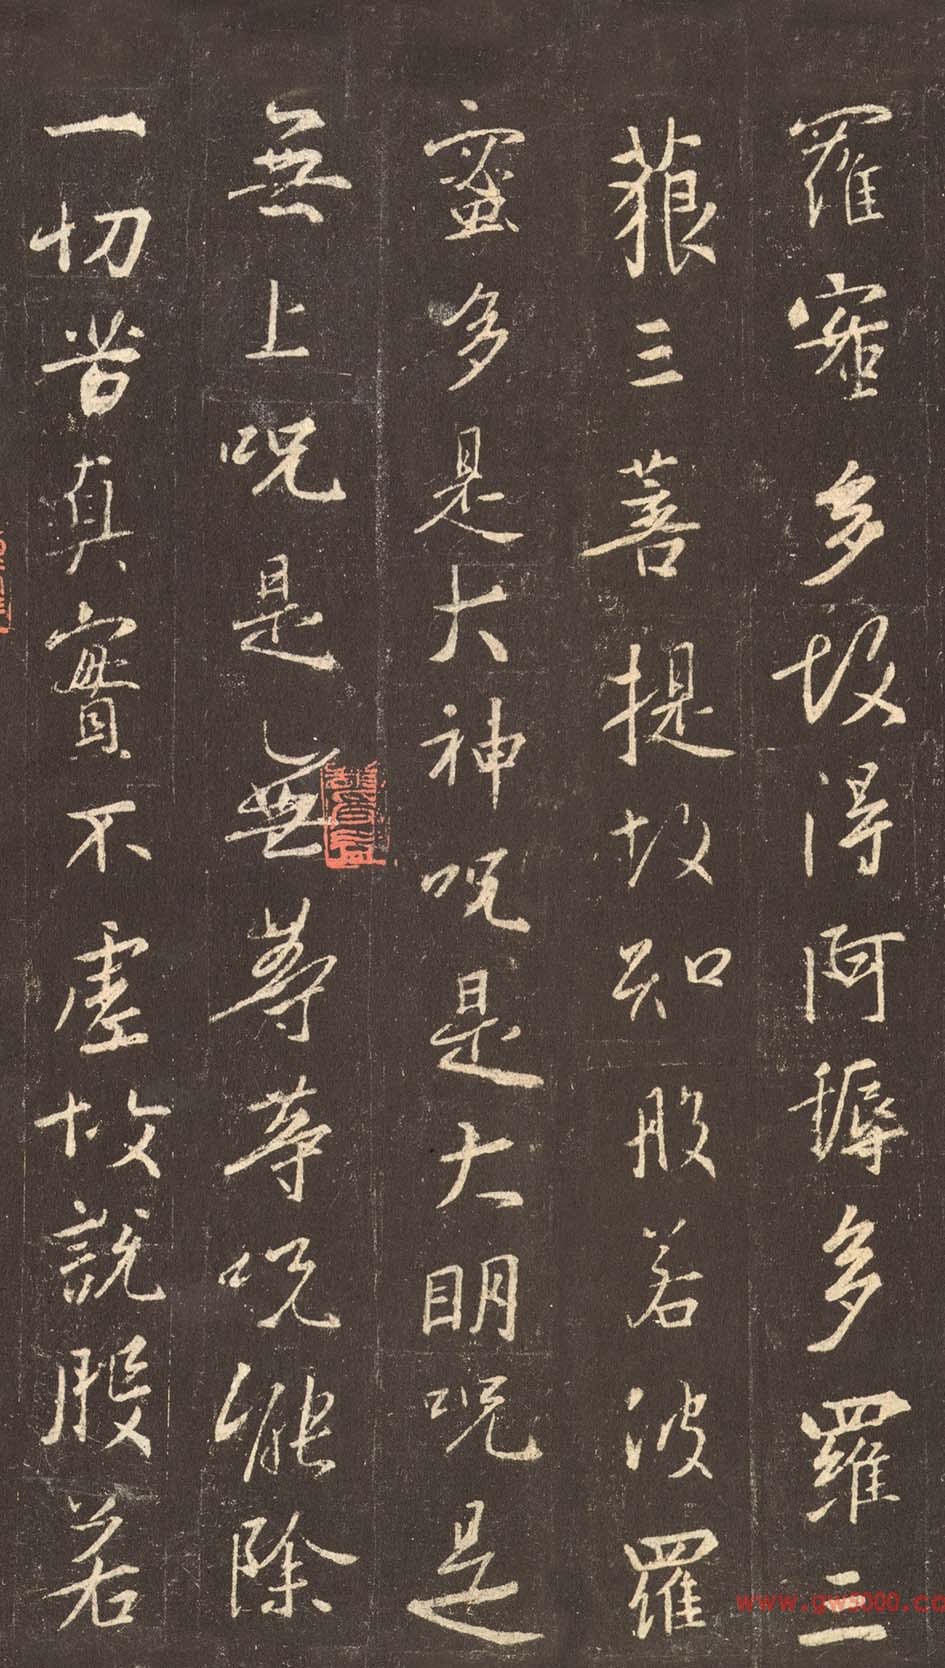 羅蜜多故得阿耨多羅三
藐三菩提故知般若波羅
蜜多是大神呪是大明呪是
無上呪是無等等呪能除
一切苦真實不虛故說般若
www.gw5000.co